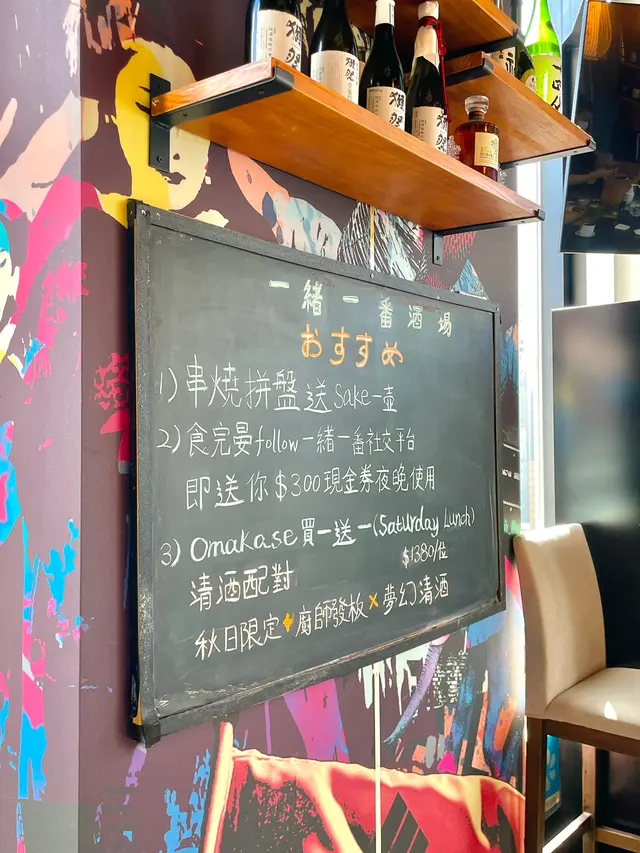 獺祭
獺祭
獺祭
獺祭
一緒一番酒場
おすすめ
1) 串燒拼盤送 Sake一壺
2) 食完晏follow一緒一番社交平台
即送你$300現金券夜晚使用
3) Omakase 買一送一 (Saturday Lunch)
$1380/位
清酒配對
秋日限定 廚師發板 × 夢幻清酒